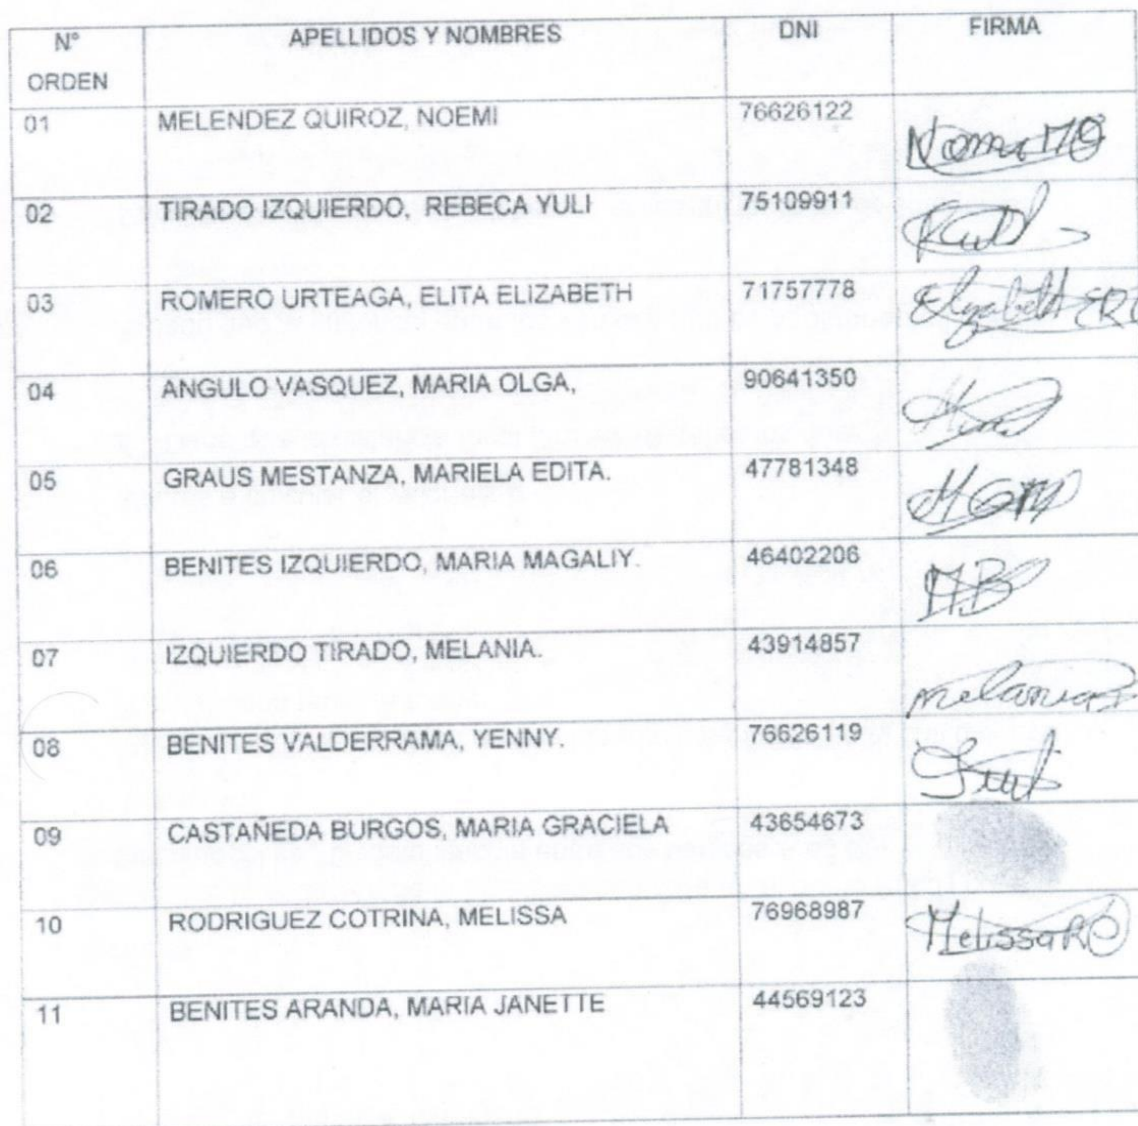 N° APELLIDOS Y NOMBRES DNI FIRMA
ORDEN
01 MELENDEZ QUIROZ, NOEMI 76626122
02 TIRADO IZQUIERDO, REBECA YULI 75109911
03 ROMERO URTEAGA, ELITA ELIZABETH 71757778 Elizabeth
04 ANGULO VASQUEZ, MARIA OLGA, 90641350
05 GRAUS MESTANZA, MARIELA EDITA. 47781348
06 BENITES IZQUIERDO, MARIA MAGALIY. 46402206 MB
07 IZQUIERDO TIRADO, MELANIA. 43914857 melania
08 BENITES VALDERRAMA, YENNY. 76626119
09 CASTAÑEDA BURGOS, MARIA GRACIELA 43654673
10 RODRIGUEZ COTRINA, MELISSA 76968987 Melissa RC
11 BENITES ARANDA, MARIA JANETTE 44569123